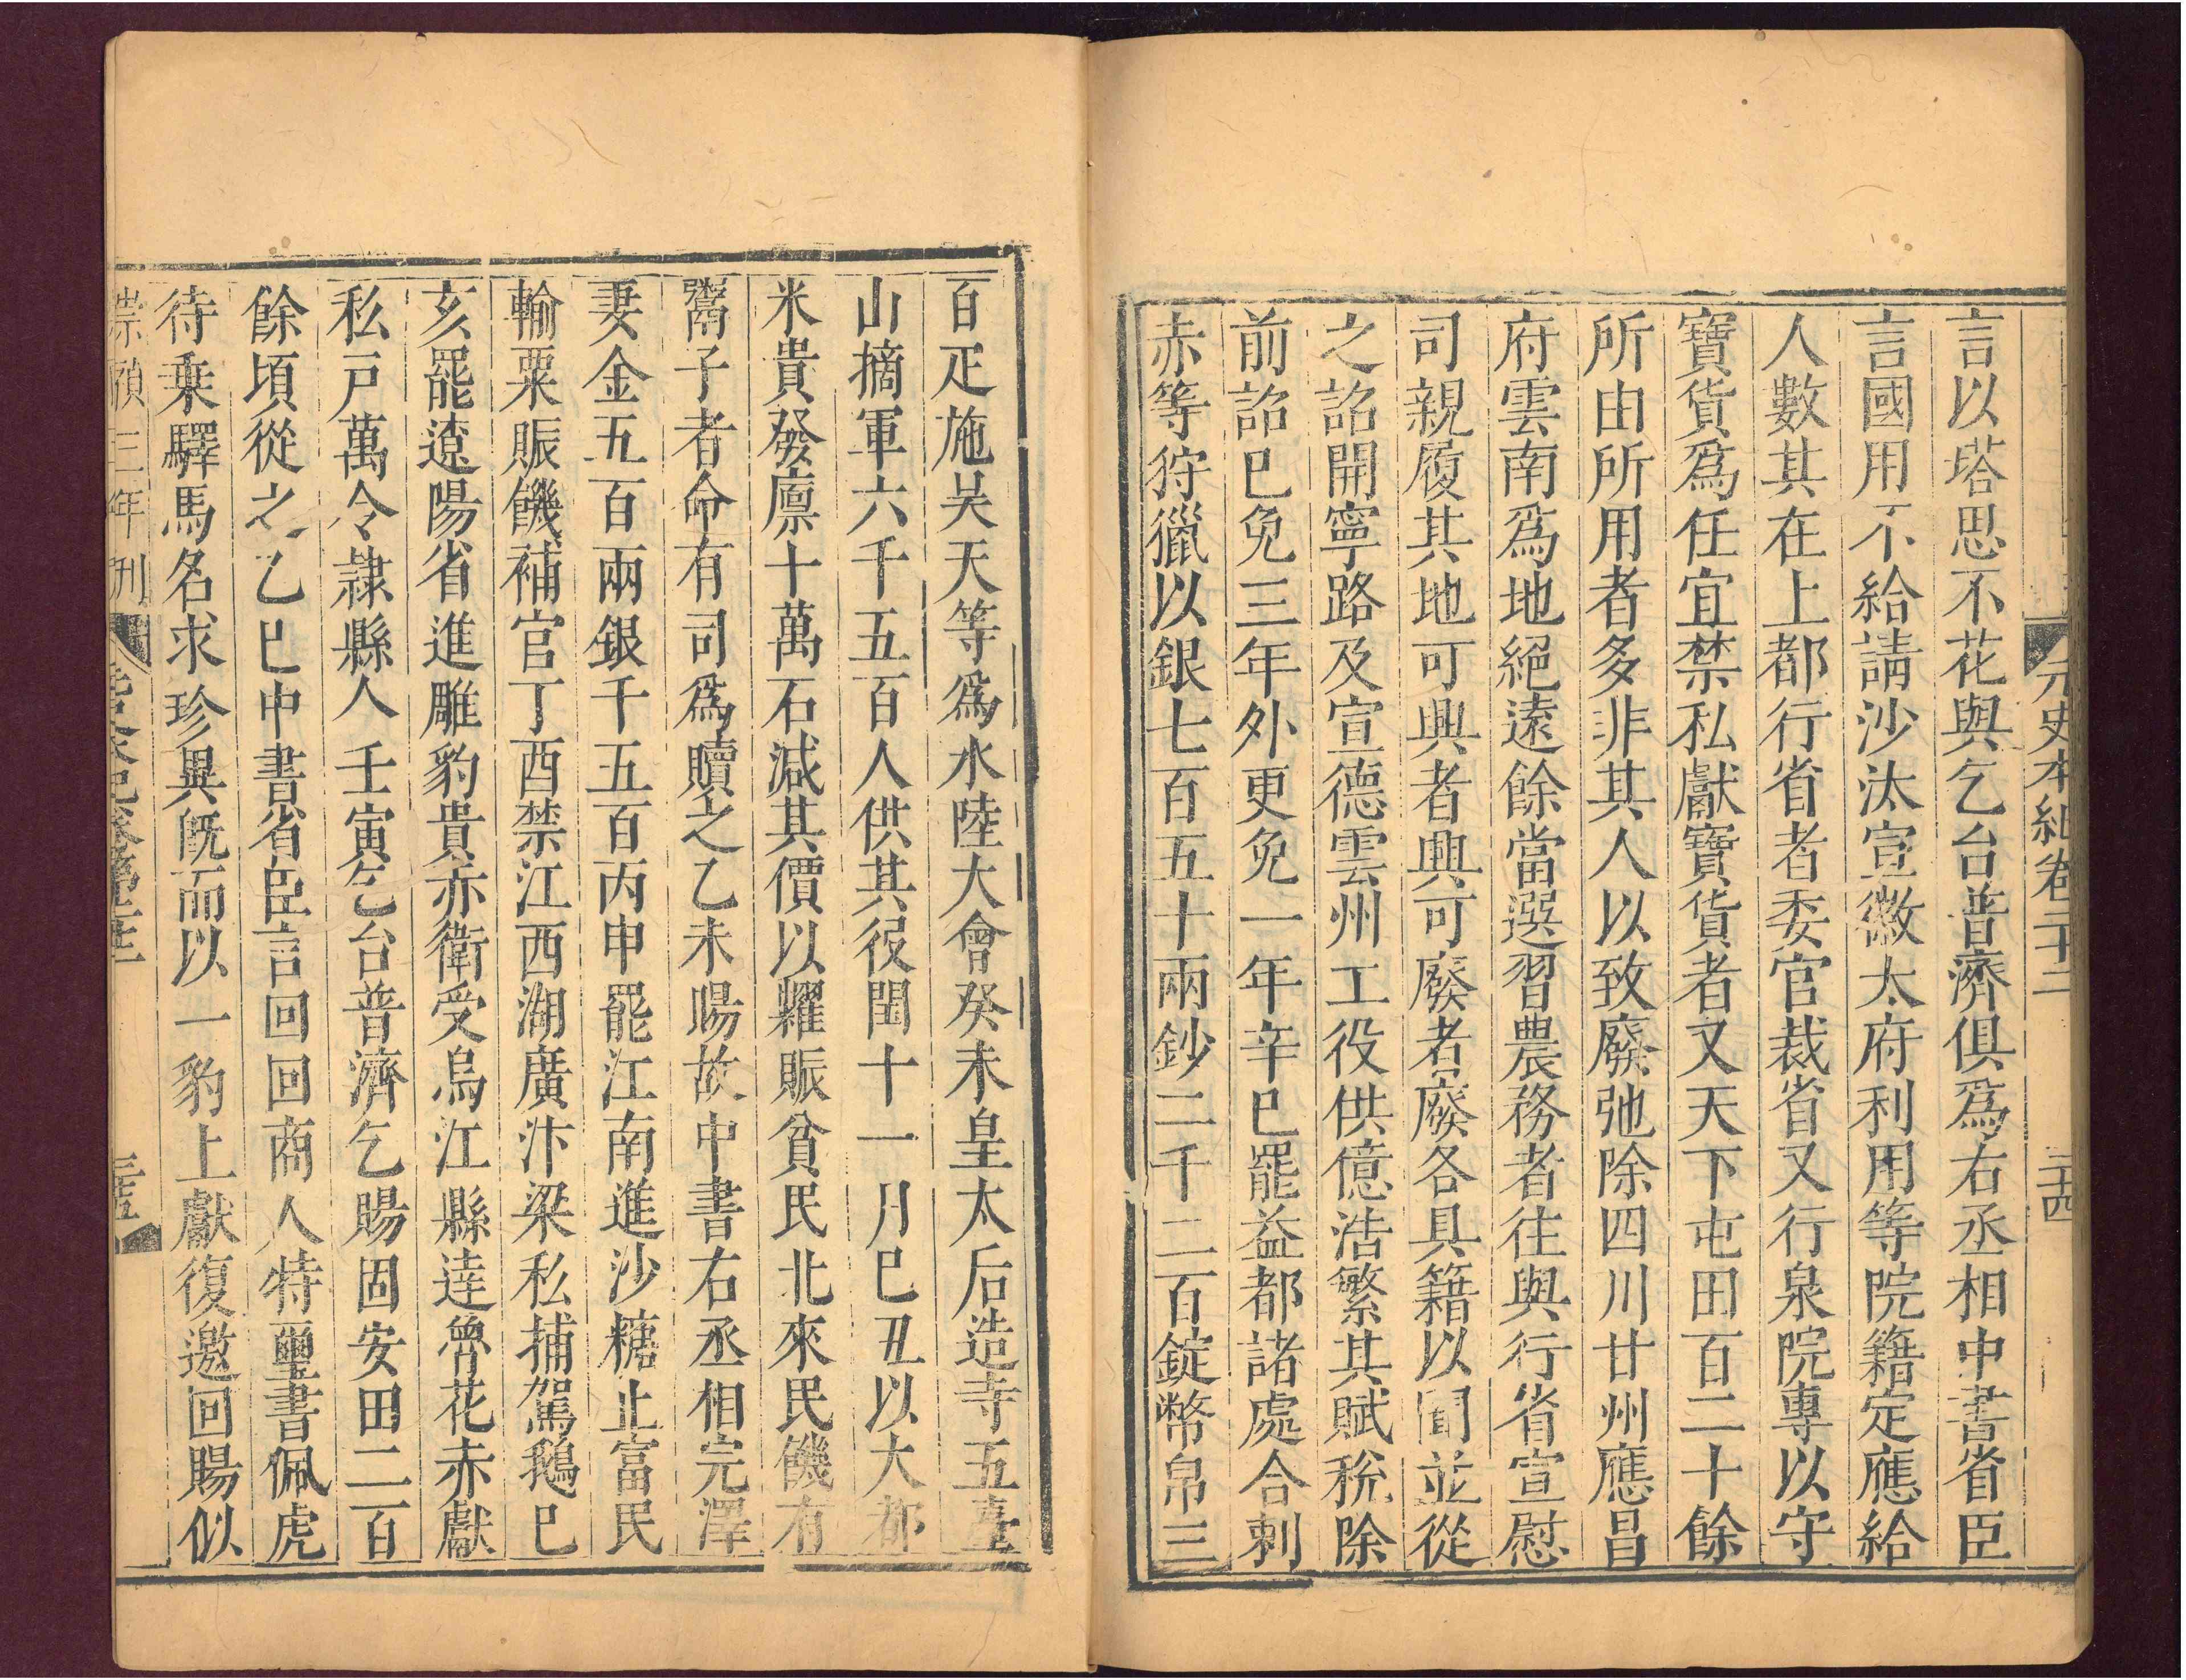 元史本紀卷二十二 三十四
言以塔思不花與乞台普濟俱爲右丞相中書省臣
言國用不給請沙汰宣徽太府利用等院籍定應給
人數其在上都行省者委官裁省又行泉院專以守
寶貨爲任宜禁私獻寶貨者又天下屯田百二十餘
所由所用者多非其人以致廢弛除四川甘州應昌
府雲南爲地絕遠餘當選習農務者往與行省宣慰
司親履其地可興者興可廢者廢各具籍以聞並從
之詔開寧路及宣德雲州工役供億浩繁其賦稅除
前詔巳免三年外更免一年辛巳罷益都諸處合剌
赤等狩獵以銀七百五十兩鈔二千二百錠幣帛三
百疋施吴天等爲水陸大會癸未皇太后造寺五臺
山摘軍六千五百人供其役閏十一月巳丑以大都
米貴發廪十萬石減其價以糶賑貧民北來民饑有
鬻子者命有司爲贖之乙未賜故中書右丞相完澤
妻金五百兩銀千五百丙申罷江南進沙糖止富民
輸粟賑饑補官丁酉禁江西湖廣汴梁私捕駕鵝巳
亥罷遼陽省進雕豹貴赤衛受烏江縣達魯花赤獻
私戸萬令隷縣人壬寅乞台普濟乞賜固安田二百
餘頃從之乙巳中書省臣言回回商人持璽書佩虎
待乗驛馬名求珍異旣而以一豹上獻復邀回賜似
崇禎三年刊